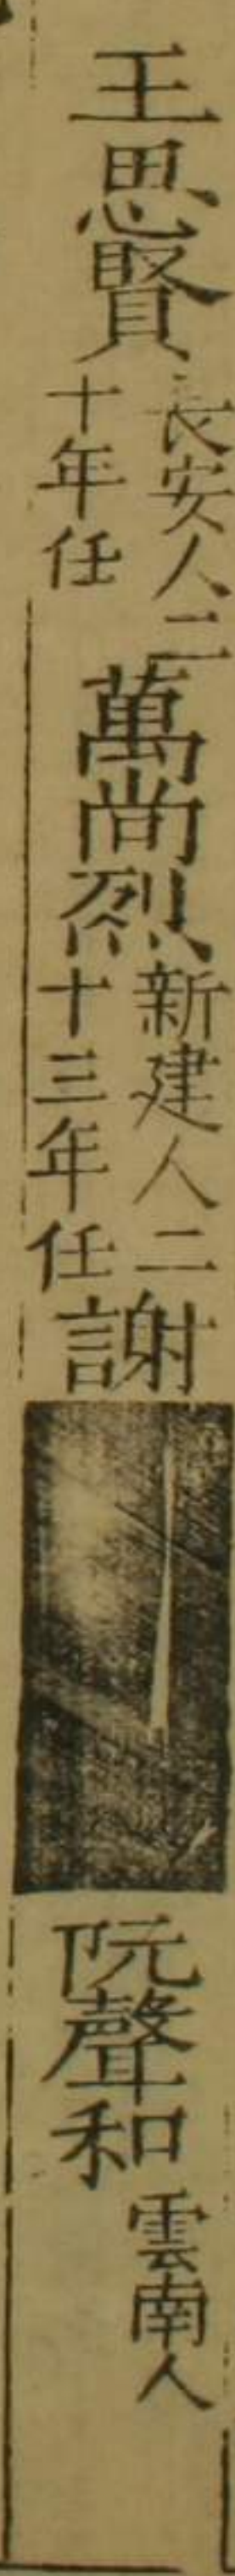 王思賢長安人二十年任萬尚烈新建人二十三年任謝阮聲和雲南人